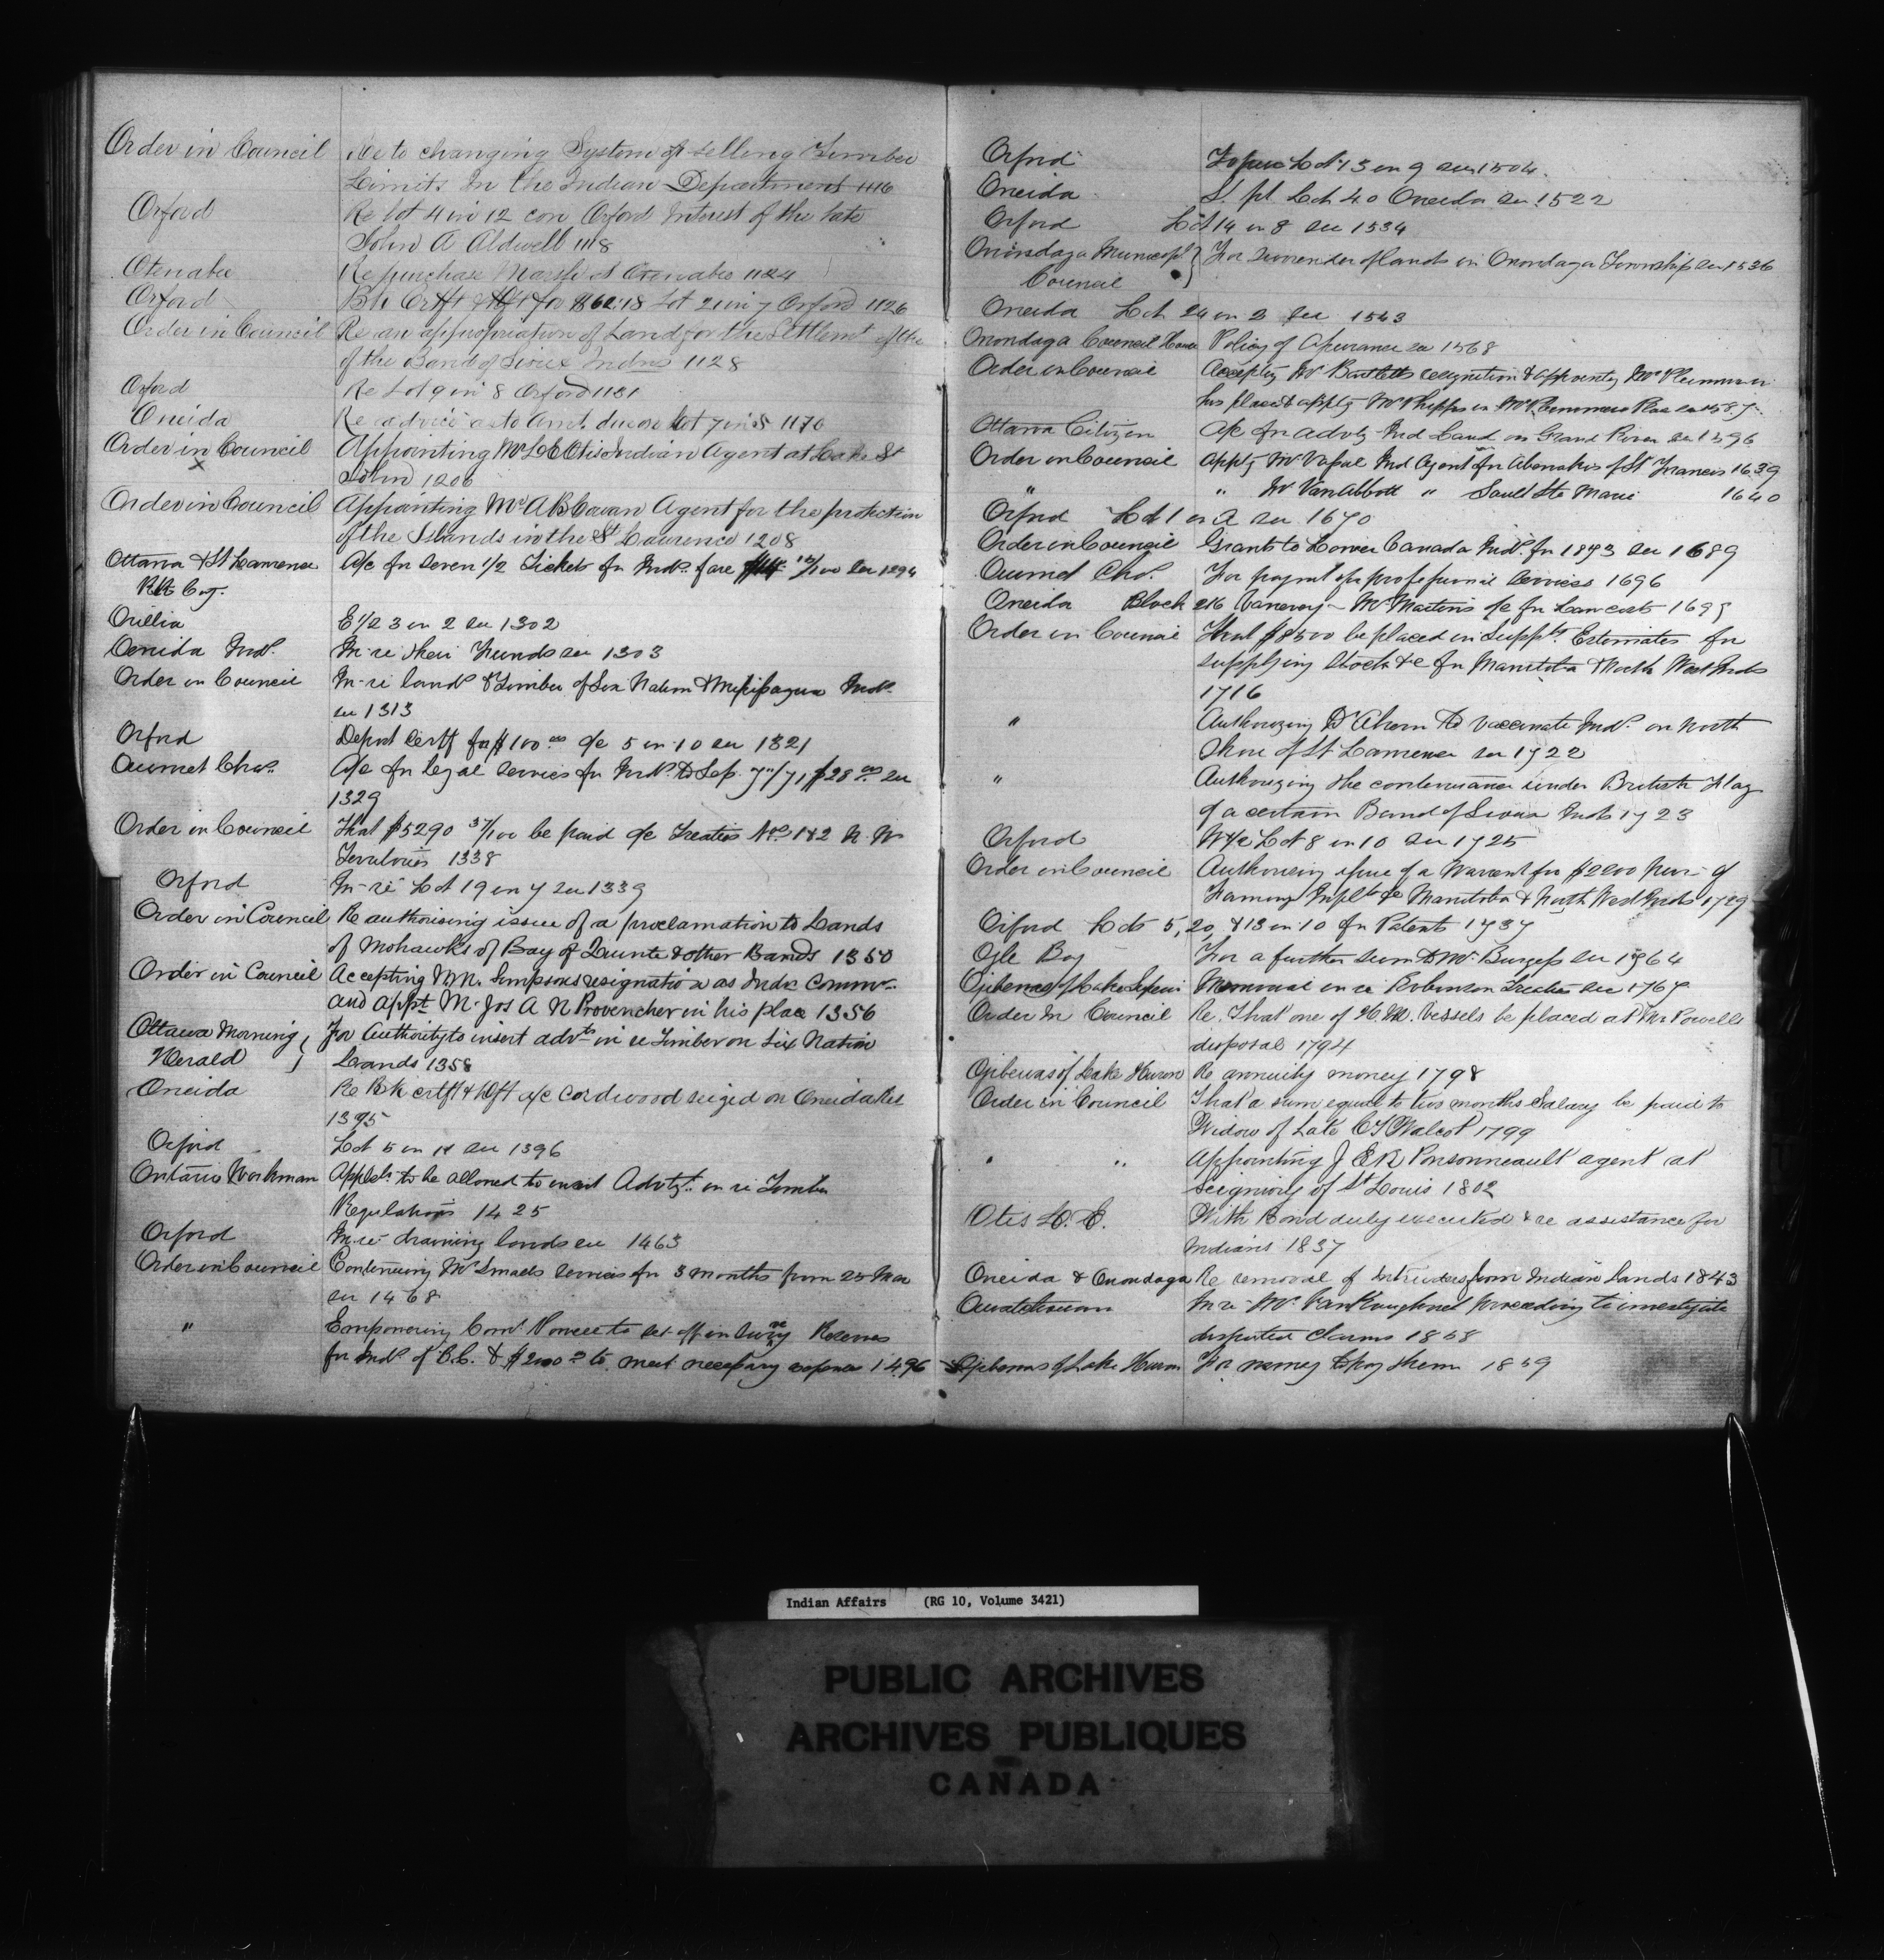 Order in Council Re to changing System of selling Timber
Limits In the Indian Department 1116
Orford Re lot 4 in 12 con Orford Interest of the late
John A Aldwell 1118
Otenabee Re purchase Marsh at Otenabee 1124
Orford Bk Certft & Dft for $60.18 Lot 21 in 7 Orford 1126
Order in Council Re an appropriation of Land for the Settlemt of the
of the Band of Sioux Indns 1128
Orford Re Lot 9 in 8 Orford 1131
Oneida Re advice as to Amt. due on Lot 7 in 8 1170
Order in Council Appointing Mr L E Otis Indian Agent at Lake St
x John 1206
Order in Council Appointing Mr A B Cowan Agent for the protection
of the Islands in the St Laurence 1208
Ottawa & St Lawrence A/c for seven 1/2 Tickets for Inds. fare 12/100 See 1294
RR Coy.
Orillia E 1/2 3 in 2 See 1302
Oneida Inds. In-re their Funds see 1303
Order in Council In-re lands & Timber of Six Nation & Missisagua Inds.
see 1313
Orford Deposit Certf for $100.00 o/c 5 in 10 See 1321
Ouimet Chas. A/c for legal services for Inds. to Sep. 7th/71 $28.00 See
1329
Order in Council That $5290 37/100 be paid o/c Treaties Nos. 1 & 2 N. W
Territories 1338
Orford In-re Lot 19 in 7 See 1339
Order in Council Re authorising issue of a proclamation to Lands
of Mohawks of Bay of Quinte & other Bands 1350
Order in Council Accepting W.M. Simpsons resignation as Indn Commr.
and appt M. Jos A N Provencher in his place 1356
Ottawa Morning } For Authority to insert advts in re Timber on Six Nation
Herald } Lands 1358
Oneida Re Bk certft & Dft o/c Cordwood seized on Oneida Res
1395
Orford Lot 5 in 11 See 1396
Ontario Workman Appln to be allowed to insert Advtzt. in re Timber
Regulations 1425
Orford In-re draining lands see 1463
Order in Council Continuing Mr Smalls services for 3 months from 25 Mar
see 1468
" Empowering Comr. Powell to set off in survg Reserves
for Inds. of B.C. & $2000 to meet necessary expense 1496
Orford Lot 13 in 9 See 1504
Oneida S. pt. Lot 40 Oneida See 1522
Orford Lot 14 in 8 See 1534
Onondaga Municipl } For surrender of lands in Onondaga Township See 1536
Council }
Oneida Lot 24 in 2 See 1543
Onondaga Council House Policy of Assurance See 1568
Order in Council Accepting Mr Bartletts resignation & appointg Mr Plummer in
his place & apptg Mr Phipps in Mr Plummers Place see 1587
Ottawa Citizen A/c for advtg Ind Land on Grand River See 1596
Order in Council Apptg Mr Vassal Ind Agent for Abenakis of St Francis 1639
" " Mr VanAbbott " Sault Ste Marie 1640
Orford Lot 1 in A See 1670
Order in Council Grants to Lower Canada Inds. for 1873 See 1689
Ouimet Chs. For paymt of professional services 1696
Oneida Block Mr Martins o/c for Law costs 1699
Order in Council That $8500 be placed in Supplty. Estimates for
supplying stock &c for Manitoba & North West Inds
1716
" Authorizing Dr Ahern to vaccinate Inds. on North
Shore of St Lawrence See 1722
" Authorizing the continuance under British Flag
of a certain Band of Sioux Inds 1723
Orford W 1/2 Lot 8 in 10 See 1725
Order in Council Authorizing issue of a Warrant for $2200 Pur- of
Farming Implts &c Manitoba & North West Inds 1729
Orford Lots 5, 20, & 13 in 10 for Patents 1737
Ogle Bog For a further sum to Mr. Burgess See 1764
Ojibewas of Lake Superior Memorial in re Robinson Treaties See 1767
Order in Council Re. That one of H.M. Vessels be placed at Mr Powells
disposal 1794
Ojibewas of Lake Huron Re annuity money 1798
Order in Council That a sum equal to two months Salary be paid to
Widow of Late C T Walcot 1799
" " Appointing J E R Ponsonneault agent at
Seigniory of St Louis 1802
Otis L. E. With Bond duly executed & re assistance for
Indians 1837
Oneida & Onondaga Re removal of Intruders from Indian Lands 1843
In re Mr. VanKoughnet proceeding to investigate
disputed claims 1858
Ojibewas of Lake Huron For money to pay them 1859
Indian Affairs (RG 10, Volume 3421)
PUBLIC ARCHIVES
ARCHIVES PUBLIQUES
CANADA